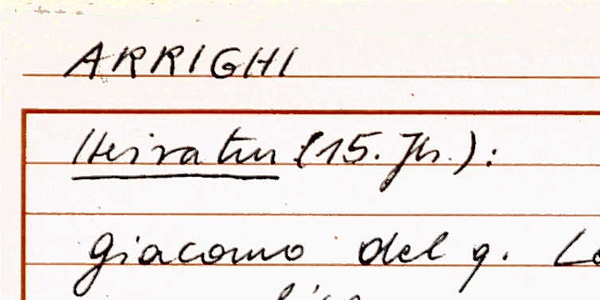 ARRIGHI
Heiraten (15. Jh.):
giacomo del q.